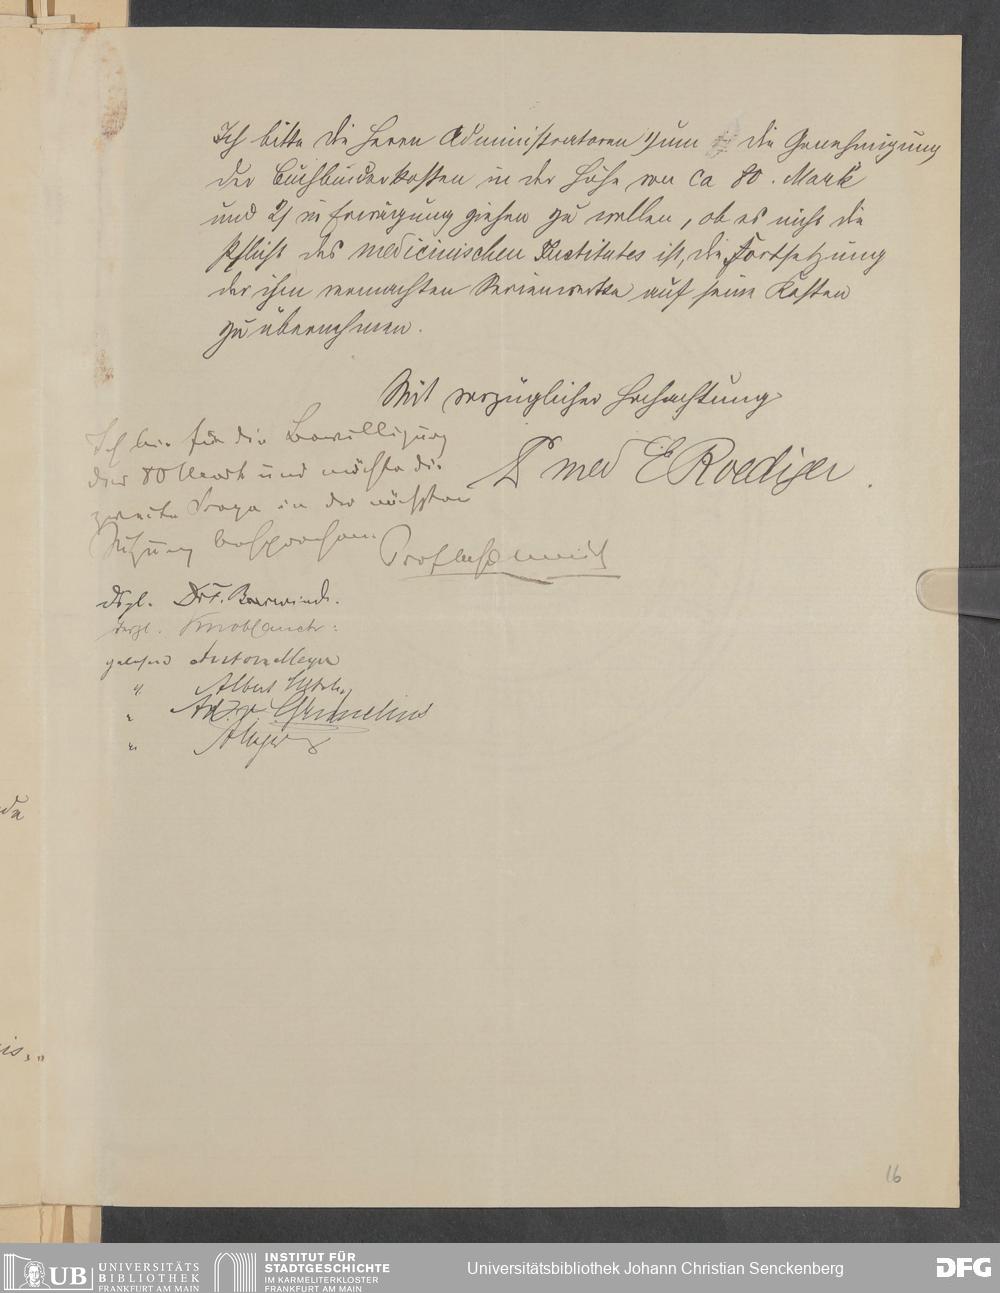 Ich bitte die Herrn Administratoren 1) um die Genehmigung
der Buchbinderkosten in der Höhe von ca 80. Mark
und 2) in Erwägung ziehen zu wollen, ob es nicht die
Pflicht des medicinischen Institutes ist, die Fortsetzung
der ihm vermachten Serienwerke auf seine Kosten
zu übernehmen.
Mit vorzüglicher Hochachtung
Dr med E Roediger.
Ich bin für die Bewilligung
der 80 Mark und möchte die
zweite Frage in der nächsten
Sitzung besprechen.
dsgl. Dr F. Baerwindt.
desgl. Knoblauch:
gelesen Anton Meyer
" Albert
"
"
16
UB UNIVERSITÄTS
BIBLIOTHEK
FRANKFURT AM MAIN
INSTITUT FÜR
STADTGESCHICHTE
IM KARMELITERKLOSTER
FRANKFURT AM MAIN
Universitätsbibliothek Johann Christian Senckenberg
DFG